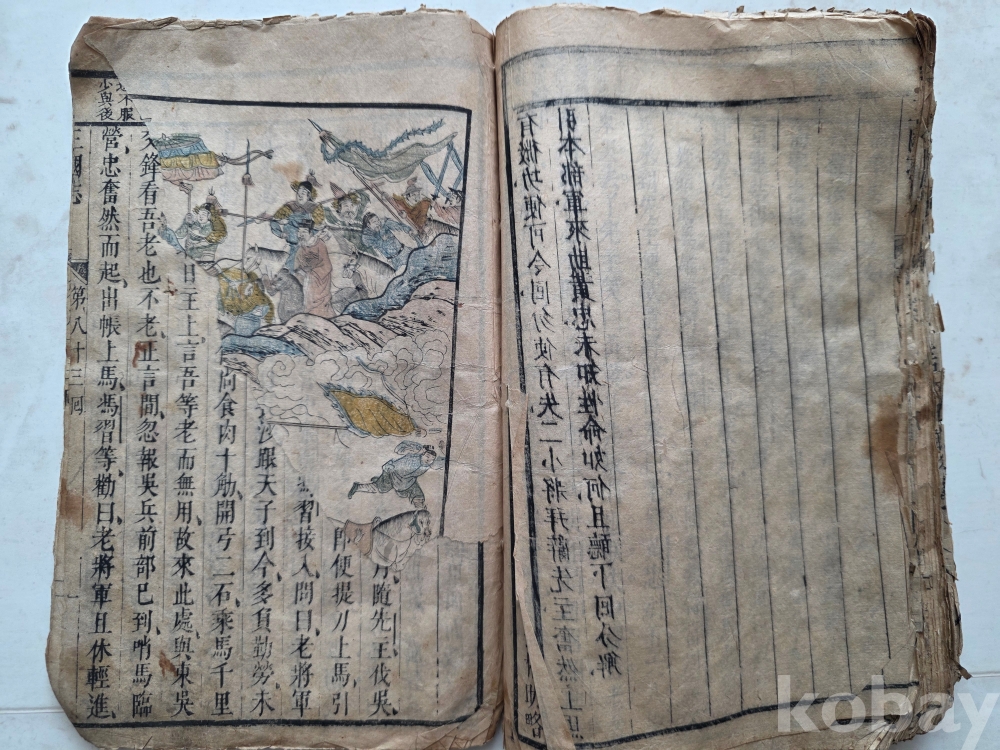 有微功便可令回勿使有失二小將拜辭先主奮然上馬
引本部軍來助黃忠未知性命如何且聽下回分解
不服
少與後
月隨先主伐吳、
即便提刀上馬引
習接入問曰老將軍
沙跟天子到今多負勤勞未
食肉十觔開弓二石乘馬千里
日主上言吾等老而無用故來此處與東吳
鋒看吾老也不老正言間忽報吳兵前部已到哨馬臨
營忠奮然而起出帳上馬馮習等勸曰老將軍且休輕進、
三國志
第八十三回
kobay